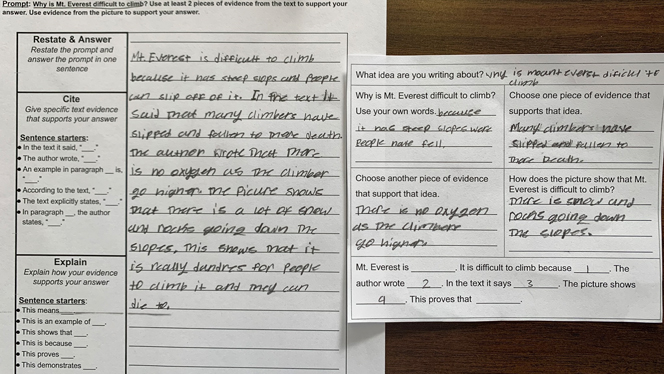 Prompt: Why is Mt. Everest difficult to climb? Use at least 2 pieces of evidence from the text to support your
answer. Use evidence from the picture to support your answer.
Restate & Answer
Restate the prompt and
answer the prompt in one
sentence
Cite
Give specific text evidence
that supports your answer
Sentence starters:
• In the text it said, "___."
• The author wrote, "___."
• An example in paragraph __ is,
"___."
• According to the text, "___"
• The text explicitly states, "___"
• In paragraph __, the author
states, "___"
Explain
Explain how your evidence
supports your answer
Sentence starters:
• This means____
• This is an example of ___.
• This shows that ___.
• This is because ___.
• This proves ___.
• This demonstrates ___.
Mt. Everest is difficult to climb
because it has steep slops and People
can slip off of it. In the text it
said that many climbers have
slipped and fullen to there death.
the author wrote that there
is no oxygen as the climber
go higher. the Picture snows
that there is a lot of snow
and rocks going down the
slopes. this shows that it
is really dandres for People
to climb it and they can
die to.
What idea are you writing about? why is mount everst dificlt to
climb
Why is Mt. Everest difficult to climb?
Use your own words. because
it has steep slopes were
People have fell.
Choose one piece of evidence that
supports that idea.
Many climbers have
slipped and fullen to
there death.
Choose another piece of evidence
that support that idea.
there is no oxygen
as the climbers
go higher.
How does the picture show that Mt.
Everest is difficult to climb?
there is snow and
rocks going down
the slopes.
Mt. Everest is ________. It is difficult to climb because __1__. The
author wrote __2__. In the text it says __3__. The picture shows
__4__. This proves that ________.